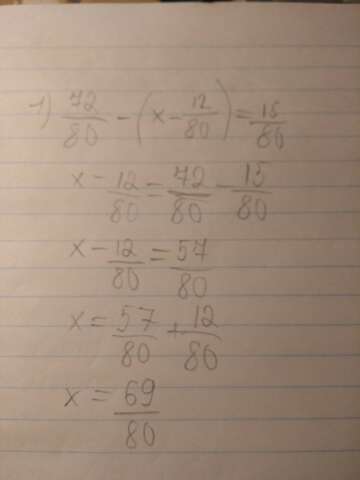 1) 72/80 - (x - 12/80) = 15/80
x - 12/80 = 72/80 - 15/80
x - 12/80 = 57/80
x = 57/80 + 12/80
x = 69/80